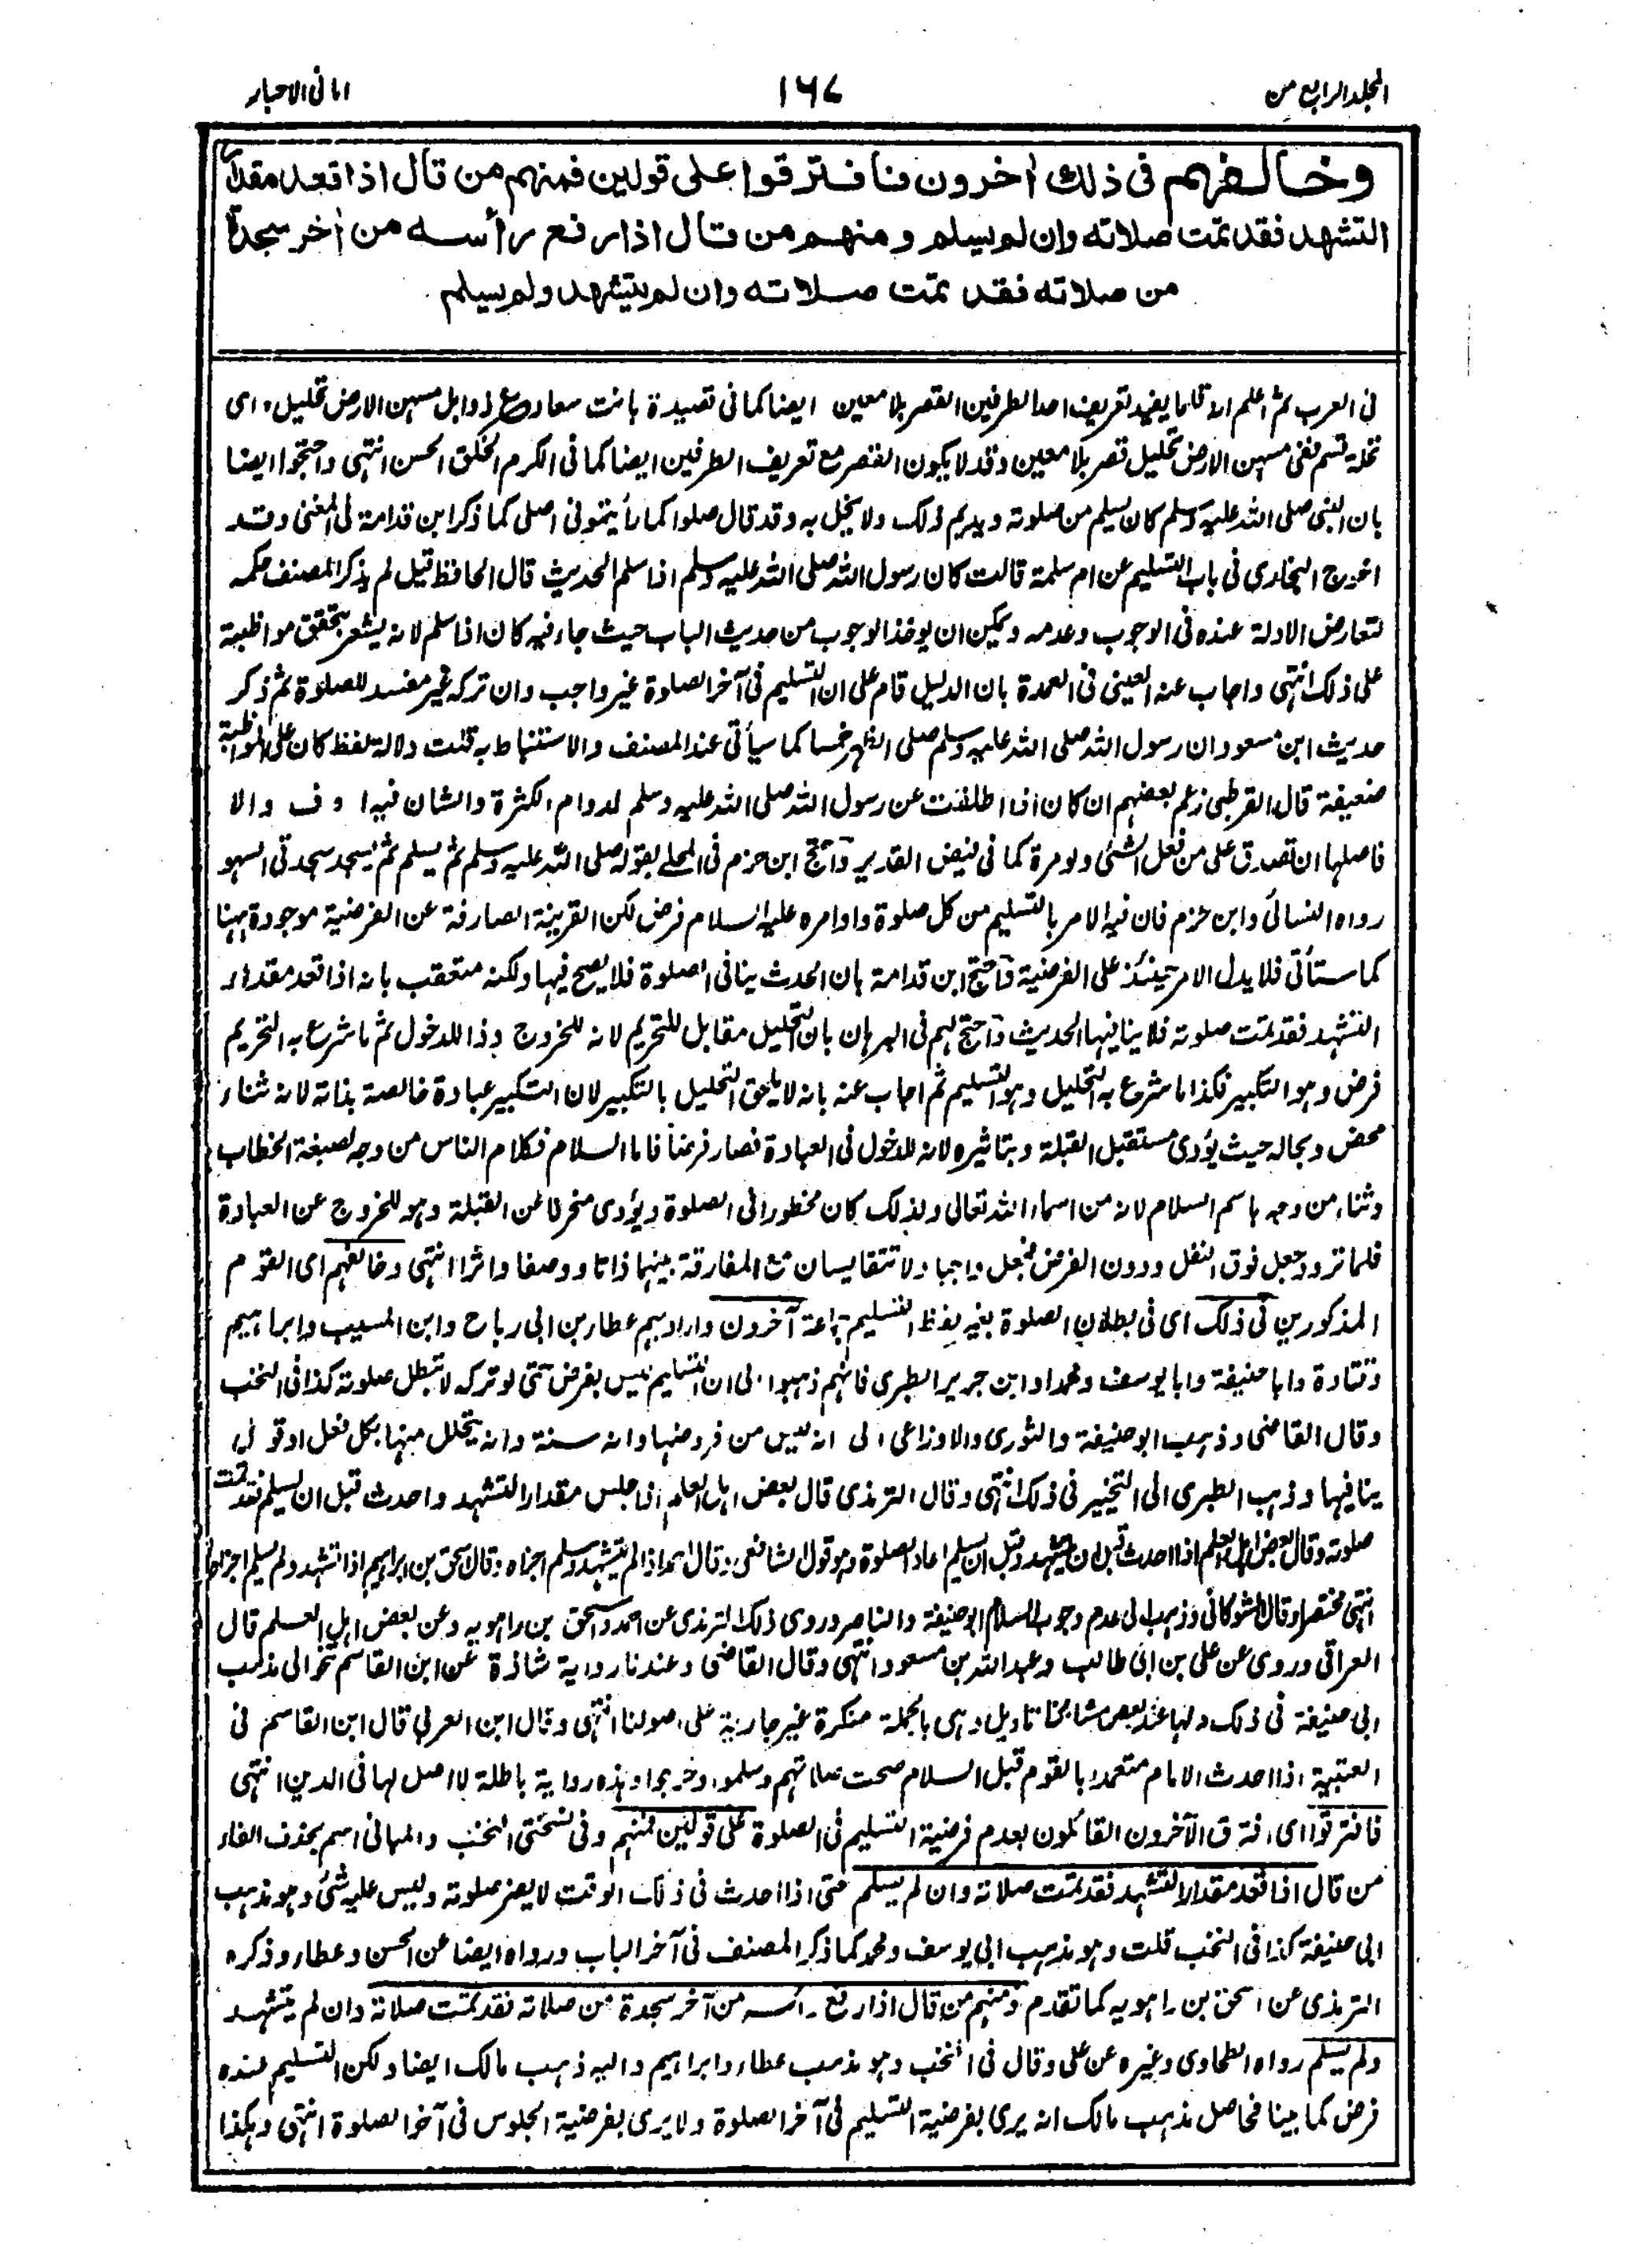 المجلد الرابع من
١٦٧
امانى الاحبار
وخالفهم فى ذلك اٰخرون فافترقوا على قولين فمنهم من قال اذا قعد مقدار
التشهد فقد تمت صلاته وان لم يسلم ومنهم من قال اذا رفع رأسه من اٰخر سجدة
من صلاته فقد تمت صلاته وان لم يتشهد ولم يسلم
فى العرب ثم اعلم انه كما يفيد تعريف احد الطرفين القصر بلا معين ايضا كما فى قصيدة بانت سعاد ع ذوابل مسهن الارض تحليل ، اى
تحلة قسم ففى مسهن الارض تحليل قصر بلا معين وقد لا يكون القصر مع تعريف الطرفين ايضا كما فى الكرم الخلق الحسن انتهى واحتجوا ايضا
بان النبى صلى الله عليه وسلم كان يسلم من صلوته ويديم ذلك ولا يخل به وقد قال صلوا كما رأيتمونى اصلى كما ذكر ابن قدامة فى المغنى وقد
اخرج البخارى فى باب التسليم عن ام سلمة قالت كان رسول الله صلى الله عليه وسلم اذا سلم الحديث قال الحافظ قيل لم يذكر المصنف حكمه
لتعارض الادلة عنده فى الوجوب وعدمه ويمكن ان يوخذ الوجوب من حديث الباب حيث جاء فيه كان اذا سلم لانه يشعر بتحقق مواظبة
على ذلك انتهى واجاب عنه العينى فى العمدة بان الدليل قام على ان التسليم فى آخر الصلوة غير واجب وان تركه غير مفسد للصلوة ثم ذكر
حديث ابن مسعود ان رسول الله صلى الله عليه وسلم صلى الظهر خمسا كما سيأتى عند المصنف والاستنباط به قلت دلالة لفظ كان على المواظبة
ضعيفة قال القرطبى زعم بعضهم ان كان اذا اطلقت عن رسول الله صلى الله عليه وسلم لدوام الكثرة والشان فيه العرف والا
فاصلها ان تصدق على من فعل الشئ ولو مرة كما فى فيض القدير وآحتج ابن حزم فى المحلى بقوله صلى الله عليه وسلم ثم يسلم ثم يسجد سجدتى السهو
رواه النسائى وابن حزم فان فيه الامر بالتسليم من كل صلوة واوامره عليه السلام فرض لكن القرينة الصارفة عن الفرضية موجودة ههنا
كما ستأتى فلا يدل الامر حينئذ على الفرضية وآحتج ابن قدامة بان الحدث ينافى الصلوة فلا يصح فيها ولكنه متعقب بانه اذا قعد مقدار
التشهد فقد تمت صلوته فلا ينافيها الحديث وآحتج لهم فى البرهان بان التحليل مقابل للتحريم لانه للخروج وذا للدخول ثم ما شرع به التحريم
فرض وهو التكبير فكذا ما شرع به التحليل وهو التسليم ثم اجاب عنه بانه لا يلحق التحليل بالتكبير لان التكبير عبادة خالصة بذاته لانه ثناء
محض وبحاله حيث يؤدى مستقبل القبلة وبتاثيره لانه للدخول فى العبادة فصار فرضا فاما السلام فكلام الناس من وجه لصيغة الخطاب
وثناء من وجه باسم السلام لانه من اسماء الله تعالى ولذلك كان محظورا فى الصلوة ويؤدى منحرفا عن القبلة وهو للخروج عن العبادة
فلما تردد جعل فوق النفل ودون الفرض فجعل واجبا ولا تتقايسان مع المفارقة بينهما ذاتا ووصفا واثرا انتهى وخالفهم اى القوم
المذكورين فى ذلك اى فى بطلان الصلوة بغير لفظ التسليم جماعة آخرون واراد بهم عطاء بن ابى رباح وابن المسيب وابراهيم
وقتادة وابا حنيفة وابا يوسف ومحمدا وابن جرير الطبرى فانهم ذهبوا الى ان التسليم ليس بفرض حتى لو تركه لا تبطل صلوته كذا فى النخب
وقال القاضى وذهب ابو حنيفة والثورى والاوزاعى الى انه ليس من فروضها وانه سنة وانه يتحلل منها بكل فعل او قول
ينافيها وذهب الطبرى الى التخيير فى ذلك انتهى وقال الترمذى قال بعض اهل العلم اذا جلس مقدار التشهد واحدث قبل ان يسلم فقد تمت
صلوته وقال بعض اهل العلم اذا احدث قبل ان يتشهد وقبل ان يسلم اعاد الصلوة وهو قول الشافعى وقال احمد اذا لم يتشهد وسلم اجزاه وقال اسحق بن ابراهيم اذا تشهد ولم يسلم اجزاه
انتهى مختصرا وقال الشوكانى وذهب الى عدم وجوب السلام ابو حنيفة والناصر وروى ذلك الترمذى عن احمد واسحق بن راهويه وعن بعض اهل العلم قال
العراقى وروى عن على بن ابى طالب وعبد الله بن مسعود انتهى وقال القاضى وعندنا رواية شاذة عن ابن القاسم تنحو الى مذهب
ابى حنيفة فى ذلك ولها عند بعض مشائخنا تاويل وهى بالجملة منكرة غير جارية على اصولنا انتهى وقال ابن العربى قال ابن القاسم فى
العتبية اذا احدث الامام متعمدا بالقوم قبل السلام صحت صلاتهم وسلموا وخرجوا وهذه رواية باطلة لا اصل لها فى الدين انتهى
فافترقوا اى افترق الآخرون القائلون بعدم فرضية التسليم فى الصلوة على قولين فمنهم وفى نسختى النخب والمبانى منهم بحذف الفاء
من قال اذا قعد مقدار التشهد فقد تمت صلاته وان لم يسلم حتى اذا احدث فى ذلك الوقت لا يضر صلوته وليس عليه شئ وهو مذهب
ابى حنيفة كذا فى النخب قلت وهو مذهب ابى يوسف ومحمد كما ذكر المصنف فى آخر الباب ورواه ايضا عن الحسن وعطاء وذكره
الترمذى عن اسحق بن راهويه كما تقدم ومنهم من قال اذا رفع رأسه من آخر سجدة من صلاته فقد تمت صلاته وان لم يتشهد
ولم يسلم رواه الطحاوى وغيره عن على وقال فى النخب وهو مذهب عطاء وابراهيم واليه ذهب مالك ايضا ولكن التسليم عنده
فرض كما بينا فحاصل مذهب مالك انه يرى بفرضية التسليم فى آخر الصلوة ولا يرى بفرضية الجلوس فى آخر الصلوة انتهى وهكذا